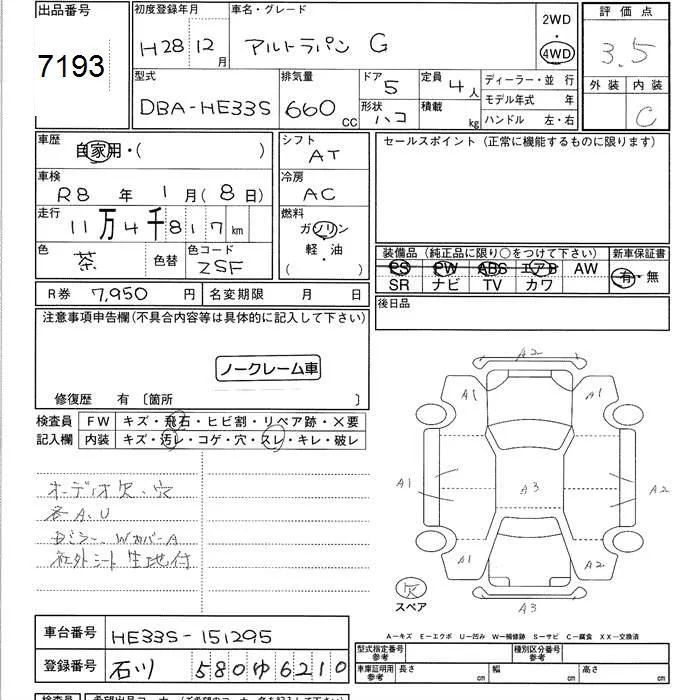 出品番号
7193
初度登録年月
H28 12 月
車名・グレード
アルトラパン G
2WD
・
4WD
評価点
3.5
外装 内装
C
型式
DBA-HE33S
排気量
660 CC
ドア 5
形状 ハコ
定員 4 人
積載 kg
ディーラー・並 行
モデル年式 年
ハンドル 左・右
車歴
自家用・( )
車検
R8 年 1 月 ( 8 日)
走行
11万4千817 km
色 茶
色替
色コード
ZSF
シフト
AT
冷房
AC
燃料
ガソリン
軽・油
( )
セールスポイント(正常に機能するものに限ります)
装備品(純正品に限り○をつけて下さい)
新車保証書
PS PW ABS エアB AW
有・無
SR ナビ TV カワ
後日品
R券 7,950 円
名変期限 月 日
注意事項申告欄(不具合内容等は具体的に記入して下さい)
ノークレーム車
修復歴 有〔箇所 〕
検査員
記入欄
FW キズ・飛石・ヒビ割・リペア跡・×要
内装 キズ・汚レ・コゲ・穴・スレ・キレ・破レ
オーディオ欠、穴
各A、U
Wカバー A
社外シート生地付
A2
A1
A1
A1
A3
A2
A1
A2
A3
欠
スペア
A－キズ E－エクボ U－凹み W－補修跡 S－サビ C－腐食 XX－交換済
車台番号
HE33S-151295
登録番号
石川 580 ゆ 6210
型式指定番号
参考
種別区分番号
参考
車庫証明用
参考
長さ cm
幅 cm
高さ cm